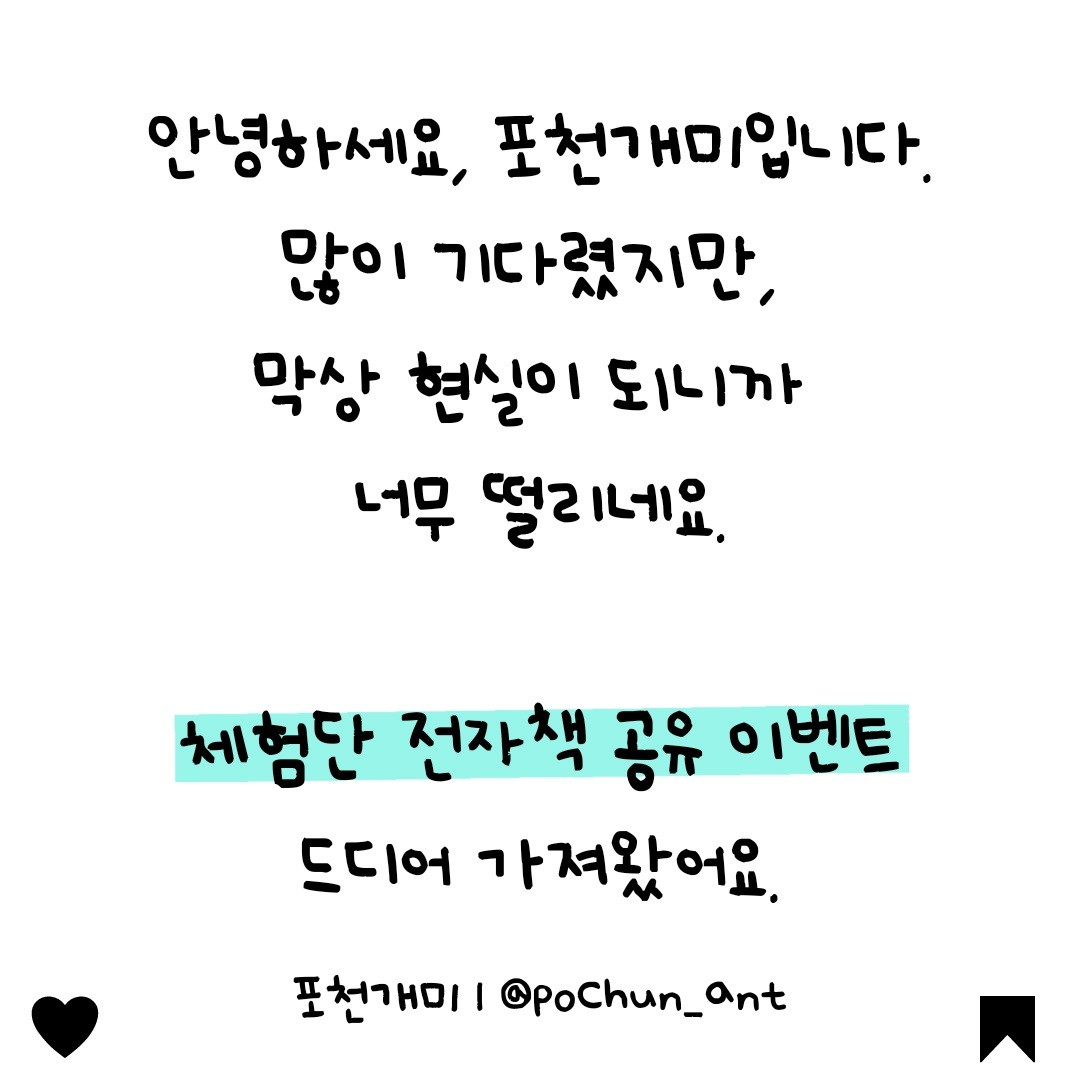 안녕하세요, 포천개미입니다.
많이 기다렸지만,
막상 현실이 되니까
너무 떨리네요.
체험단 전자책 공유 이벤트
드디어 가져왔어요.
포천개미 | @poChun_ant